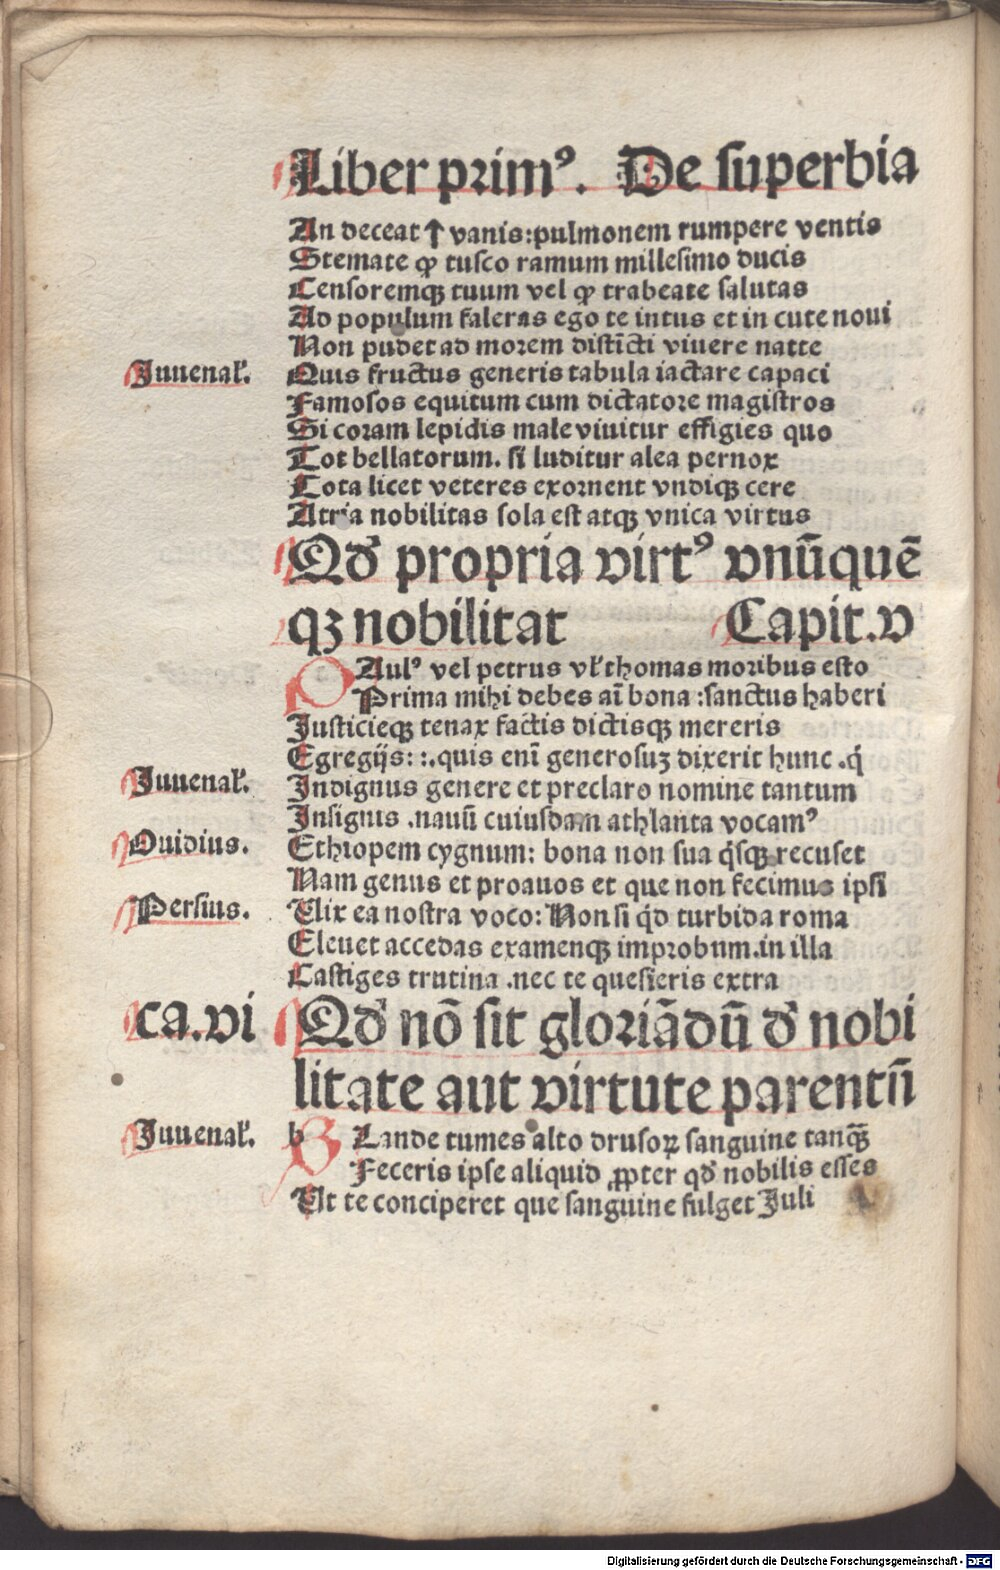 Liber primꝰ. De superbia
An deceat ↑ vanis:pulmonem rumpere ventis
Stemate ꝙ tusco ramum millesimo ducis
Censoremqꝫ tuum vel ꝙ trabeate salutas
Ad populum faleras ego te intus et in cute noui
Non pudet ad morem distīcti viuere natte
Juuenał.
Quis fructus generis tabula iactare capaci
Famosos equitum cum dictatore magistros
Si coram lepidis male viuitur effigies quo
Tot bellatorum. si luditur alea pernox
Tota licet veteres exornent vndiqꝫ cere
Atria nobilitas sola est atqꝫ vnica virtus
Qđ propria virtꝰ vnūquē
qꝫ nobilitat Capit.v
P Aulꝰ vel petrus vł thomas moribus esto
Prima mihi debes aī bona :sanctus haberi
Justicieqꝫ tenax factis dictisqꝫ mereris
Egregijs: :.quis enī generosuꝫ dixerit hunc .q́
Juuenał.
Indignus genere et preclaro nomine tantum
Insignis .nauū cuiusdam athlanta vocamꝰ
Ouidius.
Ethiopem cygnum: bona non sua q́sqꝫ recuset
Nam genus et proauos et que non fecimus ipsi
Persius.
Vix ea nostra voco: Non si q́d turbida roma
Eleuet accedas examenqꝫ improbum.in illa
Castiges trutina .nec te quesieris extra
ca.vi
Qđ nō sit gloriādū đ nobi
litate aut virtute parentū
Juuenał.
b B Lande tumes alto drusoꝝ sanguine tanqꝫ̄
Feceris ipse aliquid ꝓpter qđ nobilis esses
Ut te conciperet que sanguine fulget Juli
Digitalisierung gefördert durch die Deutsche Forschungsgemeinschaft - DFG